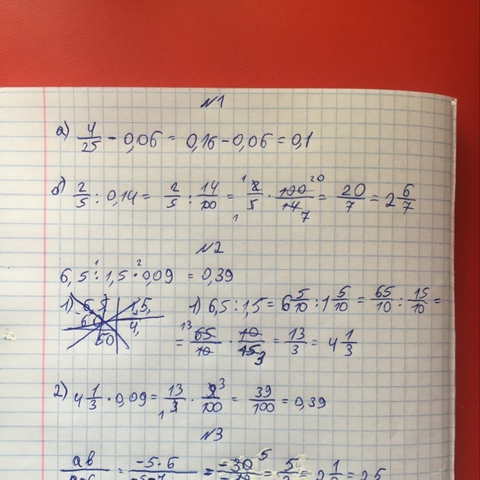 №1
а) 4/25 - 0,06 = 0,16 - 0,06 = 0,1
б) 2/5 : 0,14 = 2/5 : 14/100 = 2/5 · 100/14 = 20/7 = 2 6/7
№2
6,5 : 1,5 · 0,09 = 0,39
1) 6,5 : 1,5 = 6 5/10 : 1 5/10 = 65/10 : 15/10 =
= 65/10 · 10/15 = 13/3 = 4 1/3
2) 4 1/3 · 0,09 = 13/3 · 9/100 = 39/100 = 0,39
№3
ab = -5·6 = -30 = 5 = 2 1 = 2,5